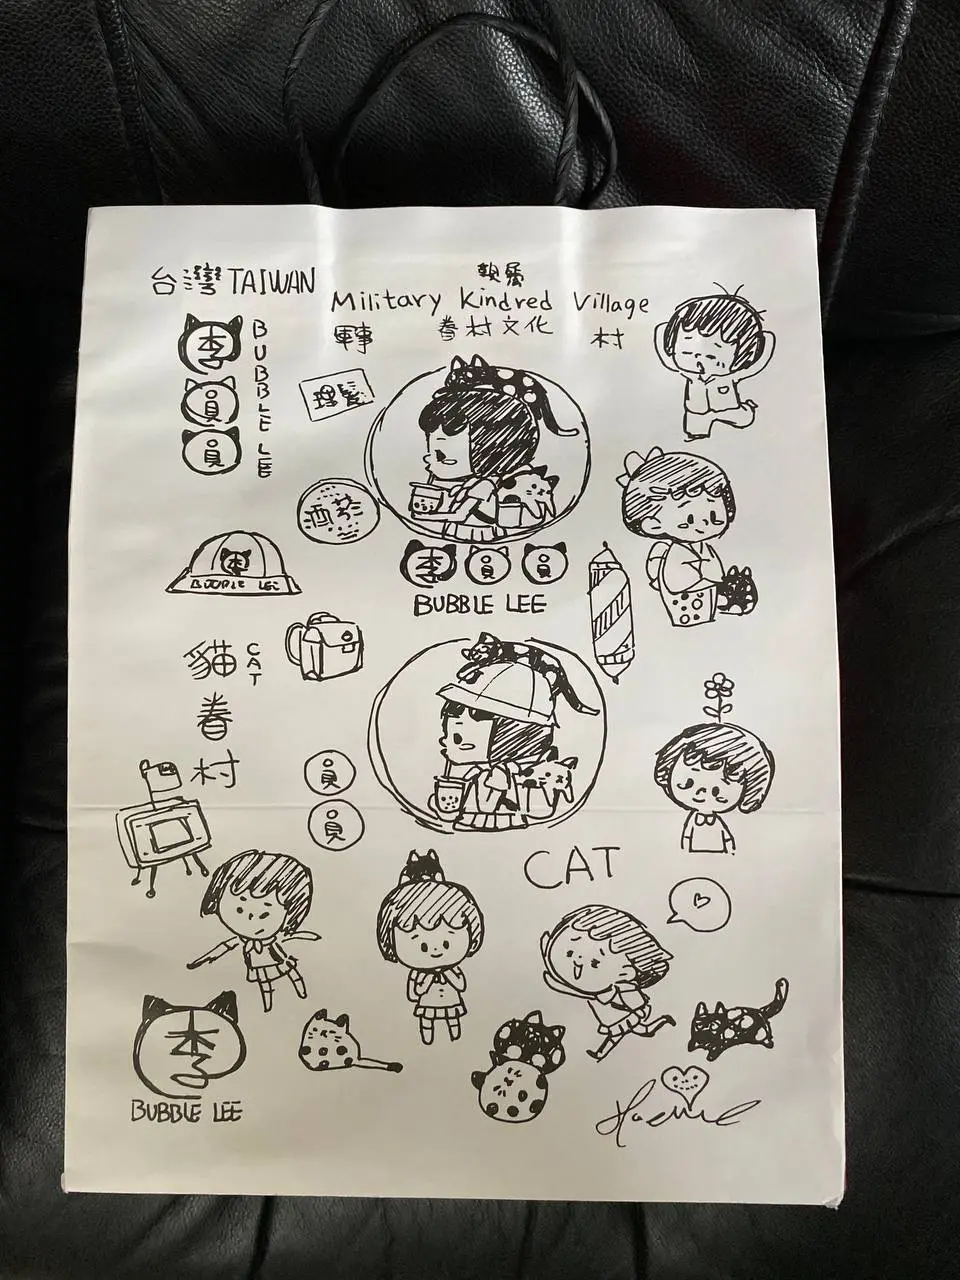 台灣 TAIWAN
親屬
Military Kindred Village
軍事 眷村文化 村
李
員
員
BUBBLE LEE
理髮
酒菸
李
BUBBLE LEE
李員員
BUBBLE LEE
貓 CAT
眷
村
員
員
CAT
李
BUBBLE LEE